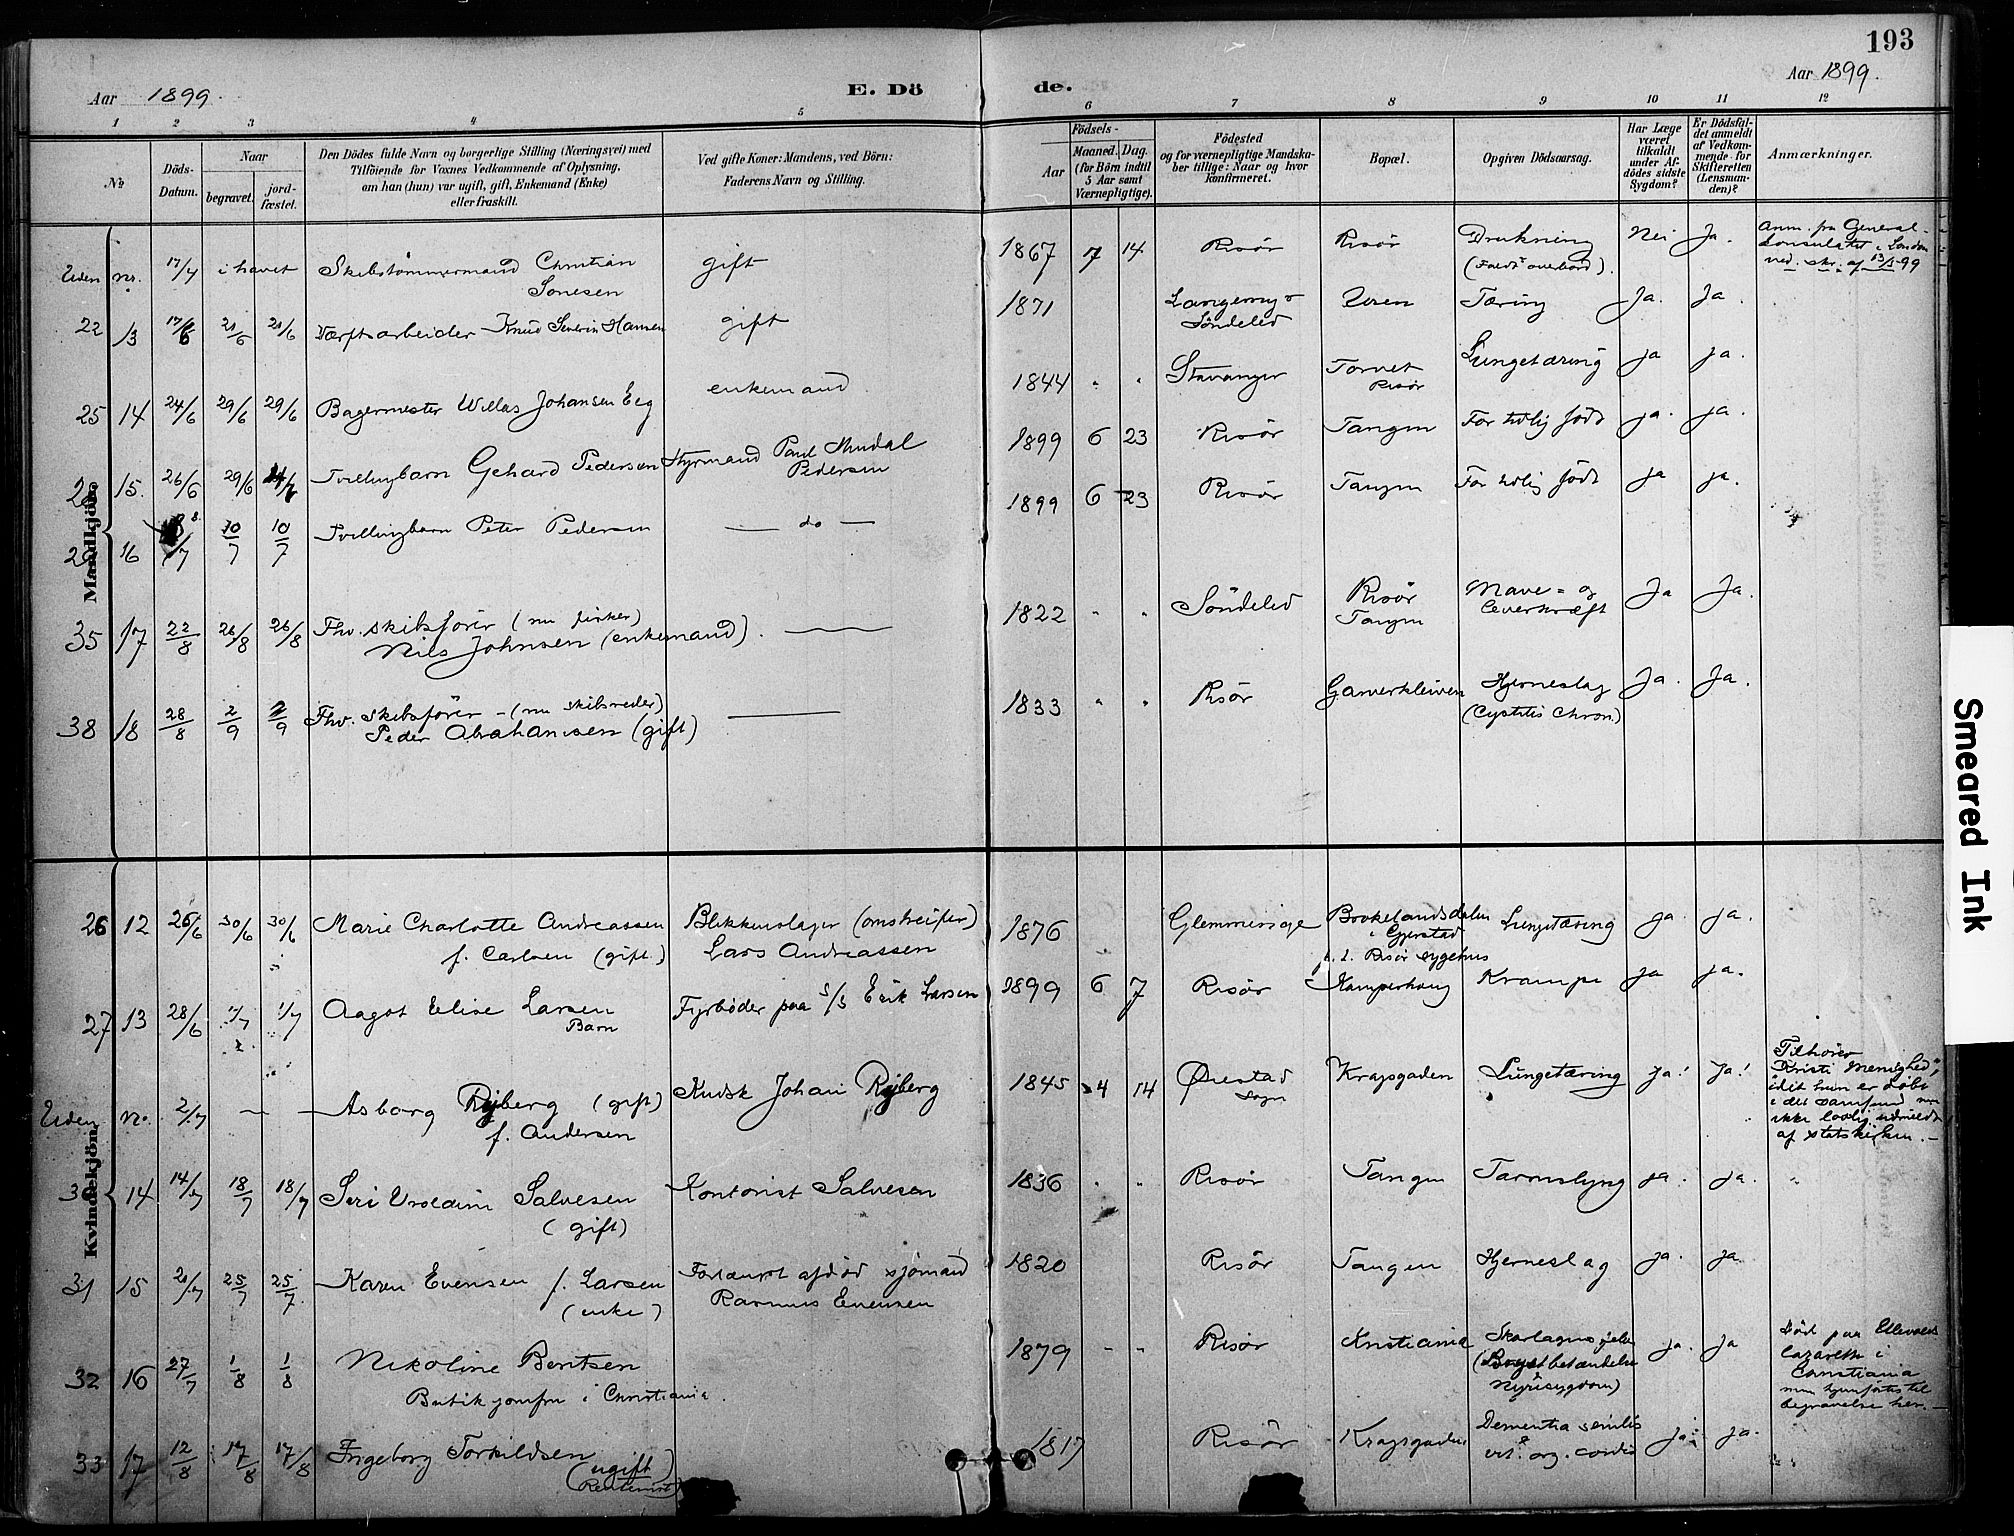 193
Aar 1899.
E. Dö
de.
Aar 1899.
1 2 3 4 5 6 7 8 9 10 11 12
№
Döds-
Datum.
Naar
begravet.
jord-
fæstet.
Den Dödes fulde Navn og borgerlige Stilling (Næringsvei) med
Tilföiende for Voxnes Vedkommende af Oplysning,
om han (hun) var ugift, gift, Enkemand (Enke)
eller fraskilt.
Ved gifte Koner: Mandens, ved Börn:
Faderens Navn og Stilling.
Födsels-
Aar
Maaned. Dag.
(for Börn indtil
5 Aar samt
Værnepligtige).
Födested
og for værnepligtige Mandska-
ber tillige: Naar og hvor
konfirmeret.
Bopæl.
Opgiven Dödsaarsag.
Har Læge
været
tilkaldt
under Af-
dödes sidste
Sygdom?
Er Dödsfal-
det anmeldt
af Vedkom-
mende for
Skifteretten
(Lensman-
den)?
Anmærkninger.
Mandkjön.
Uden nr. 17/4 i havet Skibstömmermand Christian gift 1867 7 14 Risör Risör Drukning Nei Ja. Anm. fra General-
Sonesen (Faldt overbord). konsulatet i London
ved. skr. af 13/5-99
22 13 17/6 21/6 21/6 Værftsarbeider Knud Severin Hansen gift 1871 Langemyr Uren Tæring Ja. Ja.
Söndeled
25 14 24/6 29/6 29/6 Bagermester Willas Johansen Eeg enkemand 1844 " " Stavanger Torvet Lungetæring ja ja.
Risör
15. 26/6 29/6 Tvillingbarn Gehard Pedersen Styrmand Paul Mindal 1899 6 23 Risör Tangen For tidlig född ja. ja.
Pedersen
16 8/7 10/7 10/7 Tvillingbarn Peter Pedersen — do — 1899 6 23 Risör Tangen For tidlig född ja ja.
35 17 22/8 26/8 26/8 Fhv. skibsförer (nu fisker) 1822 " " Söndeled Risör Mave- og Ja Ja.
Nils Johnsen (enkemand). Tangen Leverkræft
38 18 28/8 2/9 2/9 Fhv. skibsförer - (nu skibsreder) 1833 " " Risör Garverkleiven Hjerneslag Ja. Ja.
Peder Abrahamsen (gift) (Cystitis chron.)
Kvindekjön.
26 12 26/6 30/6 30/6 Marie Charlotte Andreassen Blikkenslager (omstreifer) 1876 Glemminge Brokelandsdalen Lungetæring ja. ja.
f. Carlsen (gift.) Lars Andreassen i Gjerstad
p. t. Risör sygehus
27 13 28/6 1/7 1/7 Aagot Elise Larsen Fyrböder paa S/S Erik Larsen 1899 6 7 Risör Kamperhaug Krampe ja ja.
Barn
Uden nr. 2/7 — — Asborg Ryberg (gift) Kudsk Johan Ryberg 1845 4 14 Öiestad Kragsgaden Lungetæring ja! ja! Tilhörer
f. Andersen sogn "Kristi Menighed",
idet hun er döbt
i det samfund men
ikke lovlig udmeldt
af statskirken. -
30 14 14/7 18/7 18/7 Siri Uroldine Salvesen Kontorist Salvesen 1836 " " Risör Tangen Tarmslyng ja. ja.
(gift)
31 15 21/7 25/7 25/7 Karen Evensen f. Larsen Forlængst afdöd sjömand 1820 Risör Tangen Hjerneslag ja. ja
(enke) Rasmus Evensen
32 16 27/7 1/8 1/8 Nikoline Bentsen 1879 " " Risör Kristiania Skarlagensfeber ja. ja Död paa Ullevaals
Butikjomfru i Christiania. (Brystbetændelse lazareth i
Nyresygdom) Christiania
men hjemförtes til
begravelse her. -
33 17 12/8 17/8 17/8 Ingeborg Torkildsen 1817 Risör Kragsgaden Dementia senilis ja. ja.
(ugift) vit. org. cordis
(Rentenist)
Smeared Ink